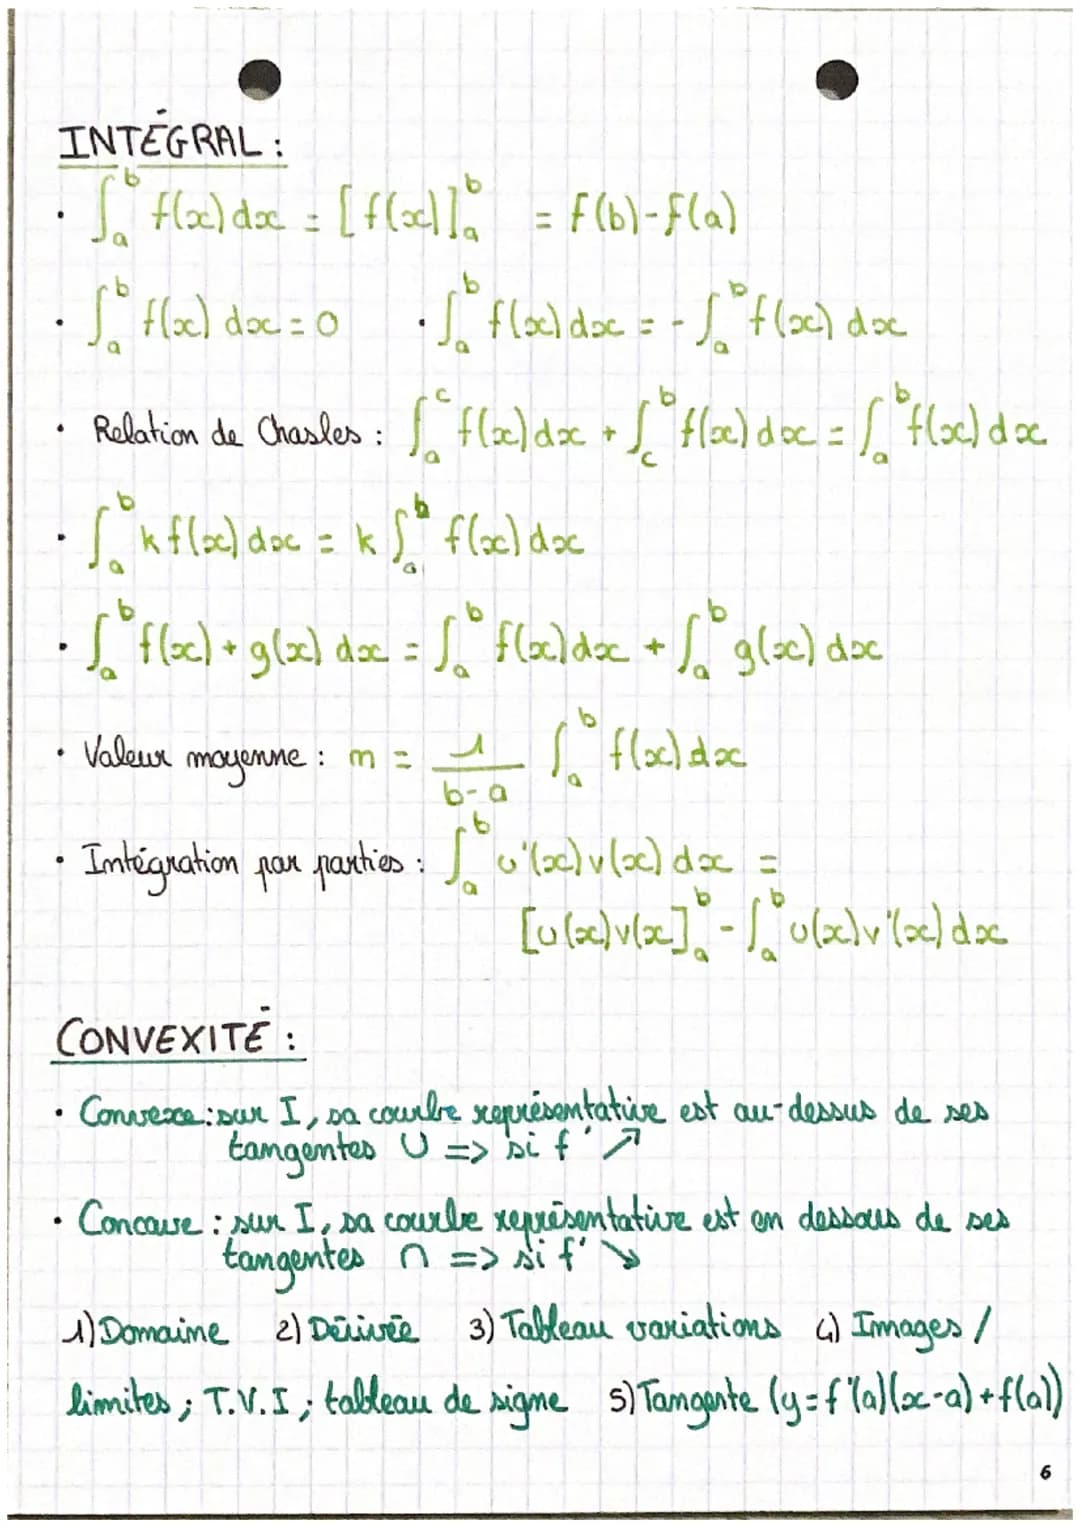 INTÉGRAL :
• ∫_a^b f(x) dx = [f(x)]_a^b = F(b) - F(a)
• ∫_a^b f(x) dx = 0 • ∫_a^b f(x) dx = - ∫_a^b f(x) dx
• Relation de Chasles : ∫_a^c f(x) dx + ∫_c^b f(x) dx = ∫_a^b f(x) dx
• ∫_a^b k f(x) dx = k ∫_a^b f(x) dx
• ∫_a^b f(x) + g(x) dx = ∫_a^b f(x) dx + ∫_a^b g(x) dx
• Valeur moyenne : m = 1/(b-a) ∫_a^b f(x) dx
• Intégration par parties : ∫_a^b u'(x) v(x) dx =
[u(x) v(x]_a^b - ∫_a^b u(x) v'(x) dx
CONVEXITÉ :
• Convexe : sur I, sa courbe représentative est au-dessus de ses
tangentes ∪ => si f' ↗
• Concave : sur I, sa courbe représentative est en dessous de ses
tangentes ∩ => si f' ↘
1) Domaine 2) Dérivée 3) Tableau variations 4) Images /
limites ; T.V.I ; tableau de signe 5) Tangente (y = f'(a)(x-a) + f(a))
6